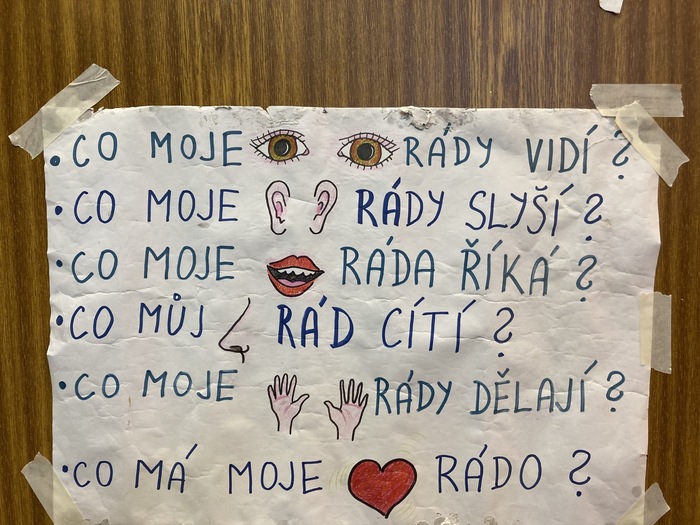 • CO MOJE RÁDY VIDÍ ?
• CO MOJE RÁDY SLYŠÍ ?
• CO MOJE RÁDA ŘÍKÁ ?
• CO MŮJ RÁD CÍTÍ ?
• CO MOJE RÁDY DĚLAJÍ ?
• CO MÁ MOJE RÁDO ?